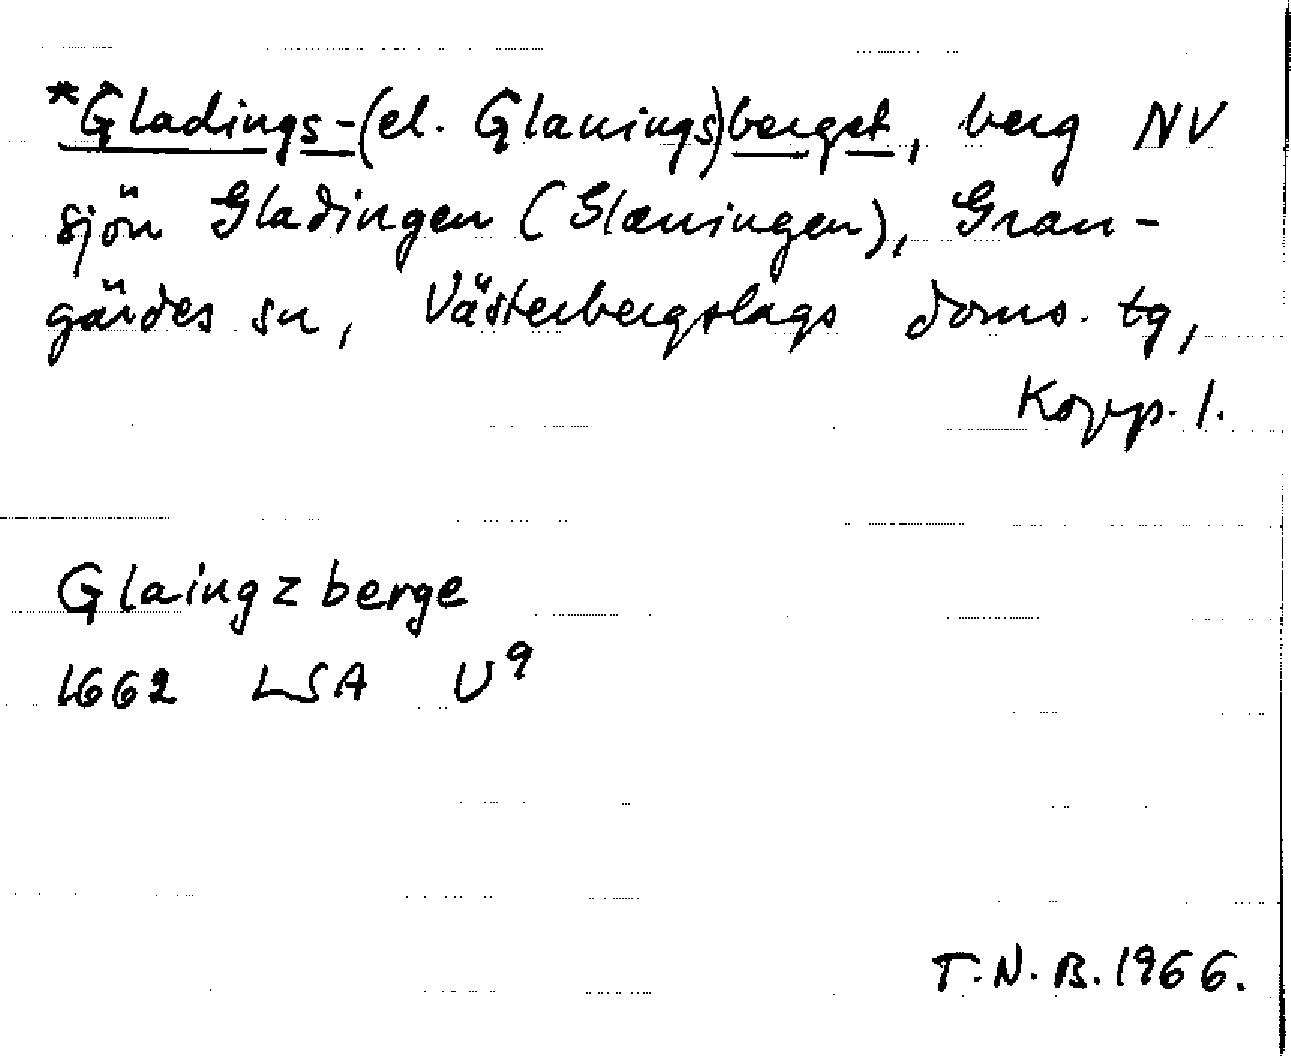 *Gladings-(el. Glanings)berget, berg NV
sjön Gladingen (Glaningen), Gran-
gärdes sn, Västerbergslags doms. tg,
Kopp. l.
Glaingz berge
1662 LSA U9
T.N.B. 1966.